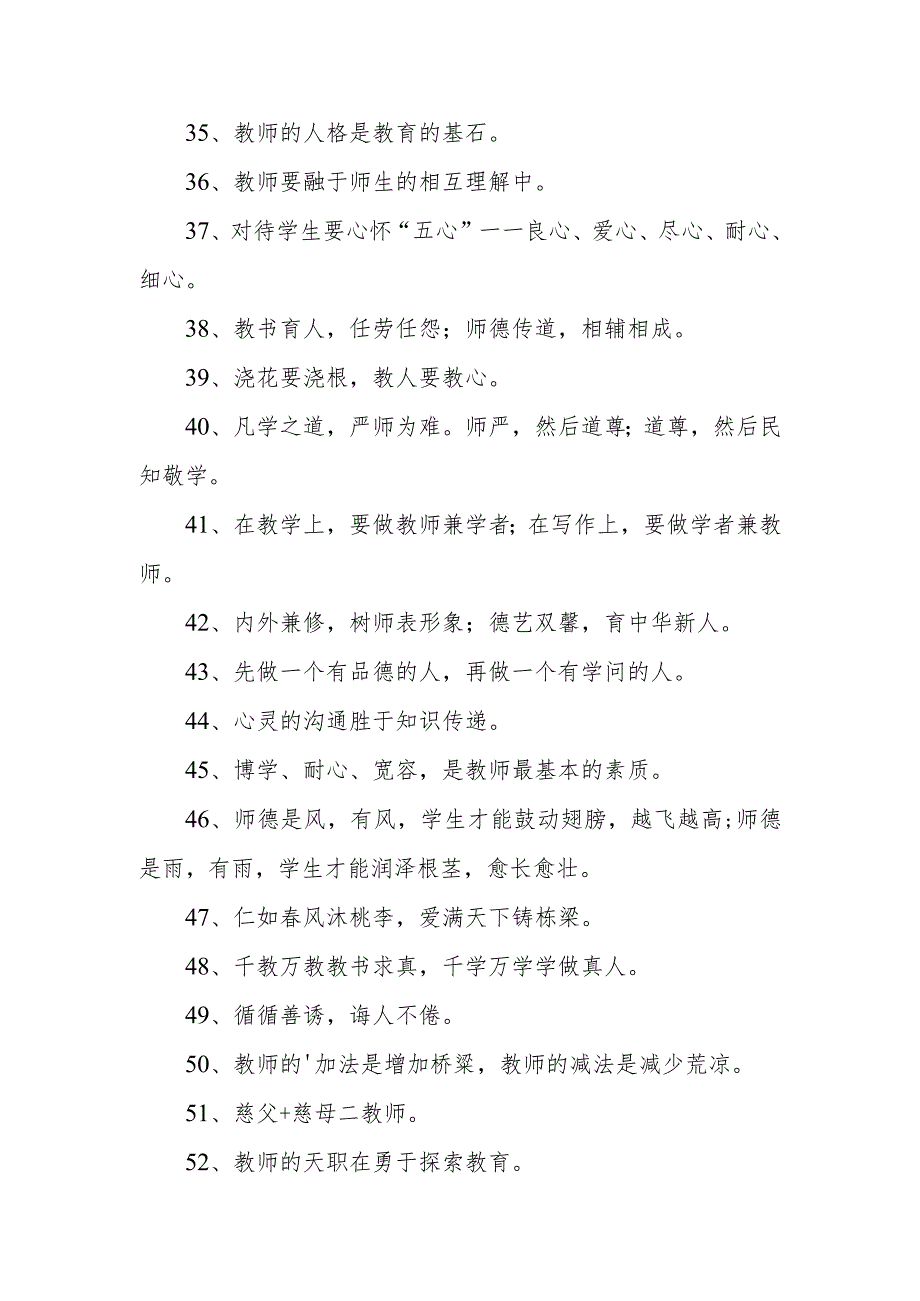 35、教师的人格是教育的基石。
36、教师要融于师生的相互理解中。
37、对待学生要心怀“五心”一一良心、爱心、尽心、耐心、
细心。
38、教书育人，任劳任怨；师德传道，相辅相成。
39、浇花要浇根，教人要教心。
40、凡学之道，严师为难。师严，然后道尊；道尊，然后民
知敬学。
41、在教学上，要做教师兼学者；在写作上，要做学者兼教
师。
42、内外兼修，树师表形象；德艺双馨，育中华新人。
43、先做一个有品德的人，再做一个有学问的人。
44、心灵的沟通胜于知识传递。
45、博学、耐心、宽容，是教师最基本的素质。
46、师德是风，有风，学生才能鼓动翅膀，越飞越高;师德
是雨，有雨，学生才能润泽根茎，愈长愈壮。
47、仁如春风沐桃李，爱满天下铸栋梁。
48、千教万教教书求真，千学万学学做真人。
49、循循善诱，诲人不倦。
50、教师的'加法是增加桥粱，教师的减法是减少荒凉。
51、慈父+慈母二教师。
52、教师的天职在勇于探索教育。